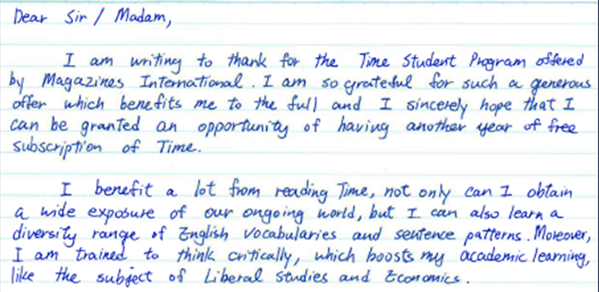 Dear Sir / Madam,
I am writing to thank for the Time Student Program offered
by Magazines International. I am so grateful for such a generous
offer which benefits me to the full and I sincerely hope that I
can be granted an opportunity of having another year of free
subscription of Time.
I benefit a lot from reading Time, not only can I obtain
a wide exposure of our ongoing world, but I can also learn a
diversity range of English vocabularies and sentence patterns. Moreover,
I am trained to think critically, which boosts my academic learning,
like the subject of Liberal Studies and Economics.